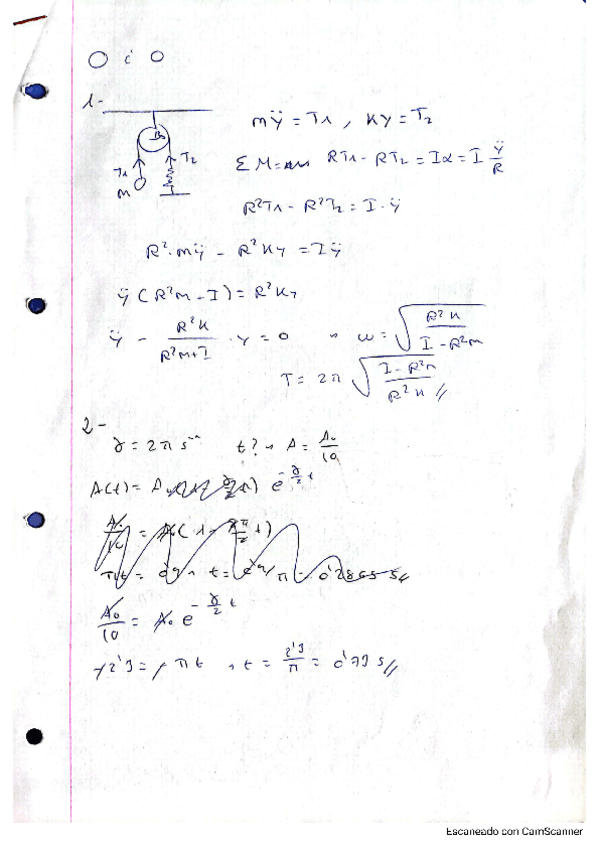 O i O
1-
mÿ = T1 , Ky = T2
T1 T2
M
ΣM = RT1 - RT2 = Iα = I ÿ/R
R²T1 - R²T2 = I · ÿ
R² · mÿ - R²Ky = Iÿ
ÿ (R²M - I) = R²Ky
ÿ - R²K/(R²M+I) · y = 0 → ω = √(R²K/(I - R²m))
T = 2π √((I - R²m)/(R²K)) //
2-
γ = 2π s⁻¹ t? → A = A₀/10
A(t) = A₀ e^(-γ/2 t)
A₀/10 = A₀ e^(-γ/2 t)
-2'3 = -πt → t = 2'3/π = 0'73 s //
Escaneado con CamScanner